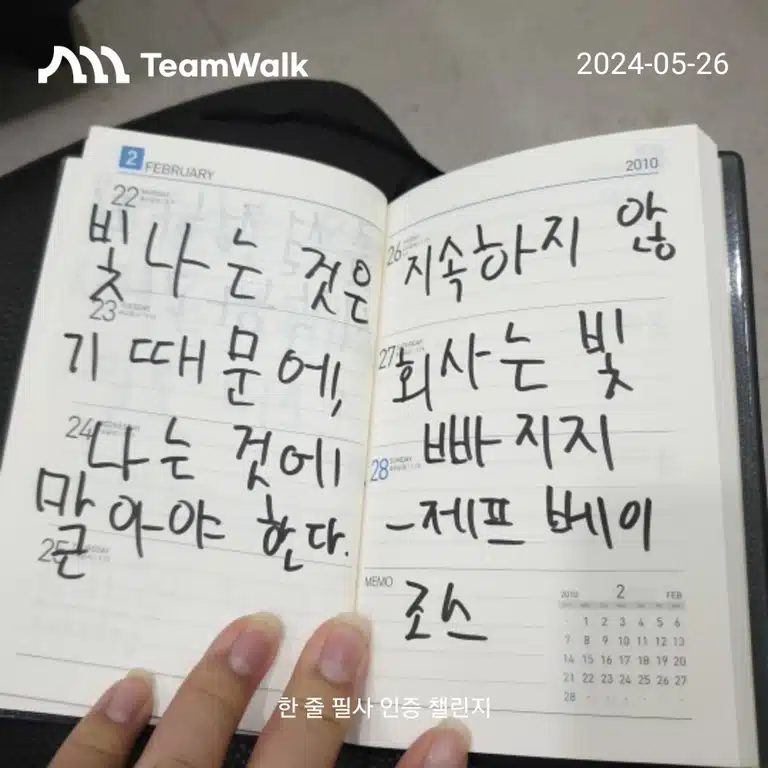 TeamWalk
2024-05-26
2 FEBRUARY
2010
22
26
빛나는 것은 지속하지 않
23
27
기 때문에, 회사는 빛
24
28 SUNDAY
나는 것에 빠지지
말아야 한다. -제프 베이
25
MEMO
조스
2010 2 FEB
1 2 3 4 5 6
7 8 9 10 11 12 13
14 15 16 17 18 19 20
21 22 23 24 25 26 27
28
한 줄 필사 인증 챌린지